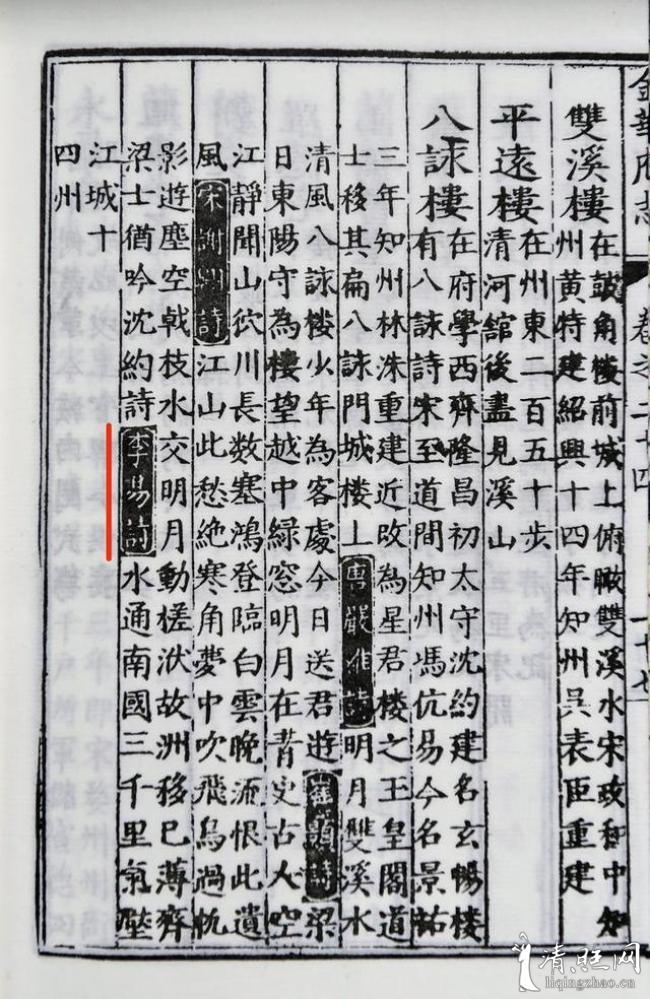 金華府志 卷之二十四 一十七
雙溪樓
在鼓角樓前城上俯瞰雙溪水宋政和中知
州黄特建紹興十四年知州吳表臣重建
平遠樓
在州東二百五十步
清河舘後盡見溪山
八詠樓
在府學西齊隆昌初太守沈約建名玄暢樓
有八詠詩宋至道間知州馮伉易今名景祐
三年知州林洙重建近改為星君樓之王皇閣道
士移其扁八詠門城楼上唐嚴維詩明月雙溪水
清風八詠楼少年為客處今日送君遊崔顥詩梁
日東陽守為樓望越中緑窓明月在青史古人空
江靜聞山狖川長数塞鴻登臨白雲晚流恨此遺
風宋詩江山此愁絶寒角夢中吹飛鳥過帆
影遊塵空戟枝水交明月動槎洑故洲移已薄齊
梁士猶吟沈約詩李易詩水通南國三千里氣壓
江城十
四州
清旺网
liqingzhao.cn